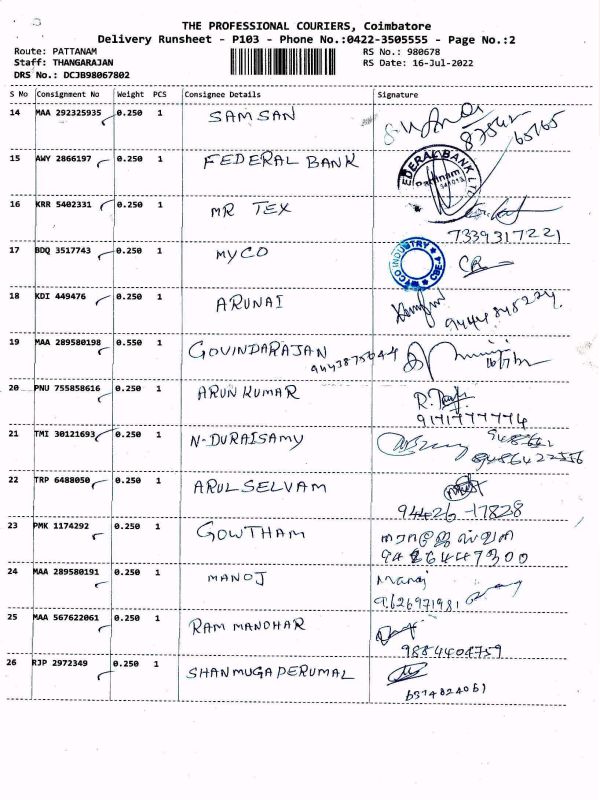 THE PROFESSIONAL COURIERS, Coimbatore
Delivery Runsheet - P103 - Phone No.:0422-3505555 - Page No.:2
Route: PATTANAM RS No.: 980678
Staff: THANGARAJAN RS Date: 16-Jul-2022
DRS No.: DCJB98067802
S No Consignment No Weight PCS Consignee Details Signature
14 MAA 292325935 0.250 1 SAMSAN
87542
65165
15 AWY 2866197 0.250 1 FEDERAL BANK
FEDERAL BANK LTD
Pattanam
16 KRR 5402331 0.250 1 MR TEX
7339317221
17 BDQ 3517743 0.250 1 MYCO
MYCO INDUSTRY CBE-4
18 KDI 449476 0.250 1 ARUNAI
9444848224
19 MAA 289580198 0.550 1 GOVINDARAJAN
9443875044 16/7/22
20 PNU 755858616 0.250 1 ARUN KUMAR
9171777774
21 TMI 30121693 0.250 1 N-DURAISAMY
9486422556
22 TRP 6488050 0.250 1 ARUL SELVAM
94426-17828
23 PMK 1174292 0.250 1 GOWTHAM
9486447300
24 MAA 289580191 0.250 1 MANOJ Manoj
9626971981
25 MAA 567622061 0.250 1 RAM MANOHAR
9884404759
26 RJP 2972349 0.250 1 SHANMUGAPERUMAL
6374824061